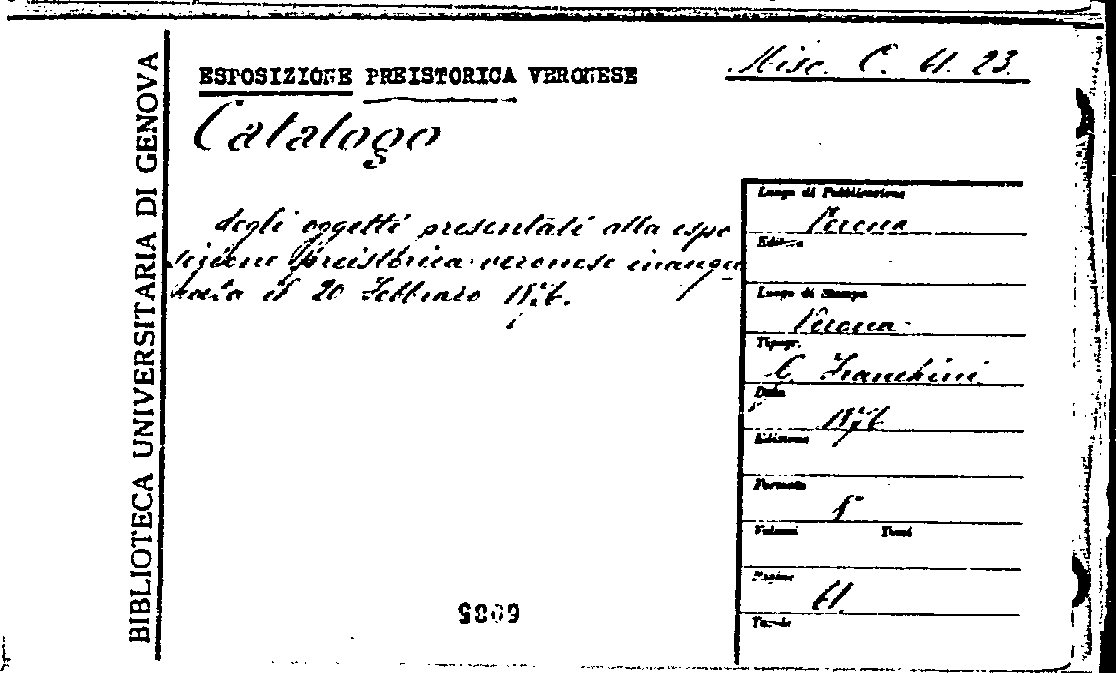 BIBLIOTECA UNIVERSITARIA DI GENOVA
ESPOSIZIONE PREISTORICA VERONESE
Misc. C. 41. 23.
Catalogo
degli oggetti presentati alla espo
sizione preistorica veronese inaugu
rata il 20 Febbraio 1876.
Luogo di Pubblicazione
Verona
Editore
Luogo di Stampa
Verona
Tipogr.
C. Franchini
Data
1876
Edizione
Formato
8°
Volumi Tomi
Pagine
41.
Tavole